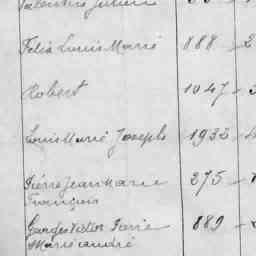 Valentin Julien
Félix Louis Marie 888
Robert 1047
Louis Marie Joseph 1933
Pierre Jean Marie 375
François
Georges Victor Pierre 889
Marie andré